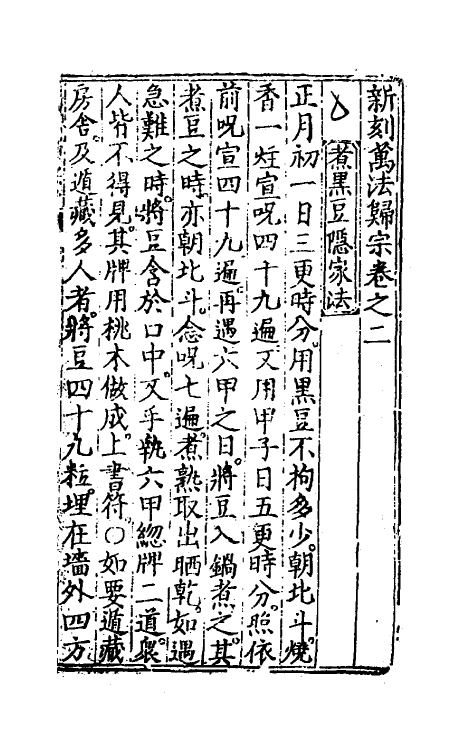 新刻萬法歸宗卷之二
煮黑豆隱家法
正月初一日三更時分。用黑豆不拘多少。朝北斗燒。
香一炷宣呪四十九遍又用甲子日五更時分。照依
前呪宣四十九遍再遇六甲之日。將豆入鍋煮之其
煮豆之時亦朝北斗。念呪七遍。煮熟取出晒乾。如遇
急難之時。將豆含於口中。又手執六甲総牌二道。衆
人皆不得見。其牌用桃木做成。上書符。○如要遁藏
房舍。及遁藏多人者。將豆四十九粒。埋在墻外四方